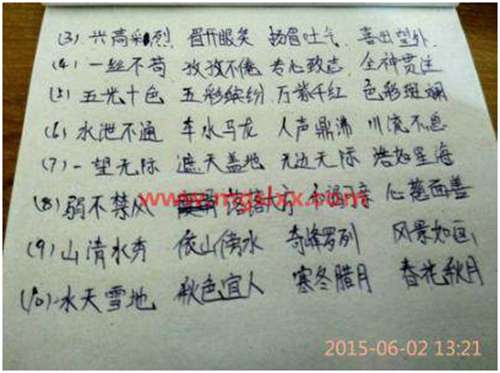 (3) 兴高彩烈 眉开眼笑 扬眉吐气 喜出望外
(4) 一丝不苟 孜孜不倦 专心致志 全神贯注
(5) 五光十色 五彩缤纷 万紫千红 色彩斑斓
(6) 水泄不通 车水马龙 人声鼎沸 川流不息
(7) 一望无际 遮天盖地 无边无际 浩如星海
(8) 弱不禁风 落落大方 心慈面善
(9) 山清水秀 依山傍水 奇峰罗列 风景如画
(10) 水天雪地 秋色宜人 寒冬腊月 春花秋月
www.mgslxx.com
2015-06-02 13:21